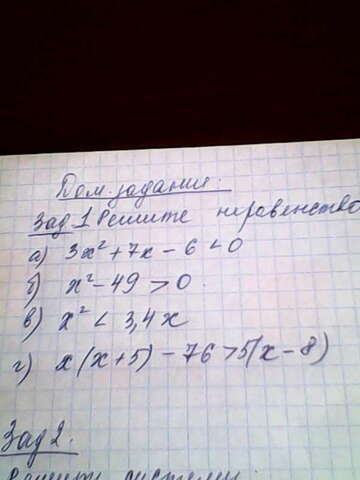 Дом. задание.
Зад 1 Решите неравенство
а) 3x² + 7x - 6 < 0
б) x² - 49 > 0.
в) x² < 3,4x
г) x(x+5) - 76 > 5(x - 8)
Зад 2.